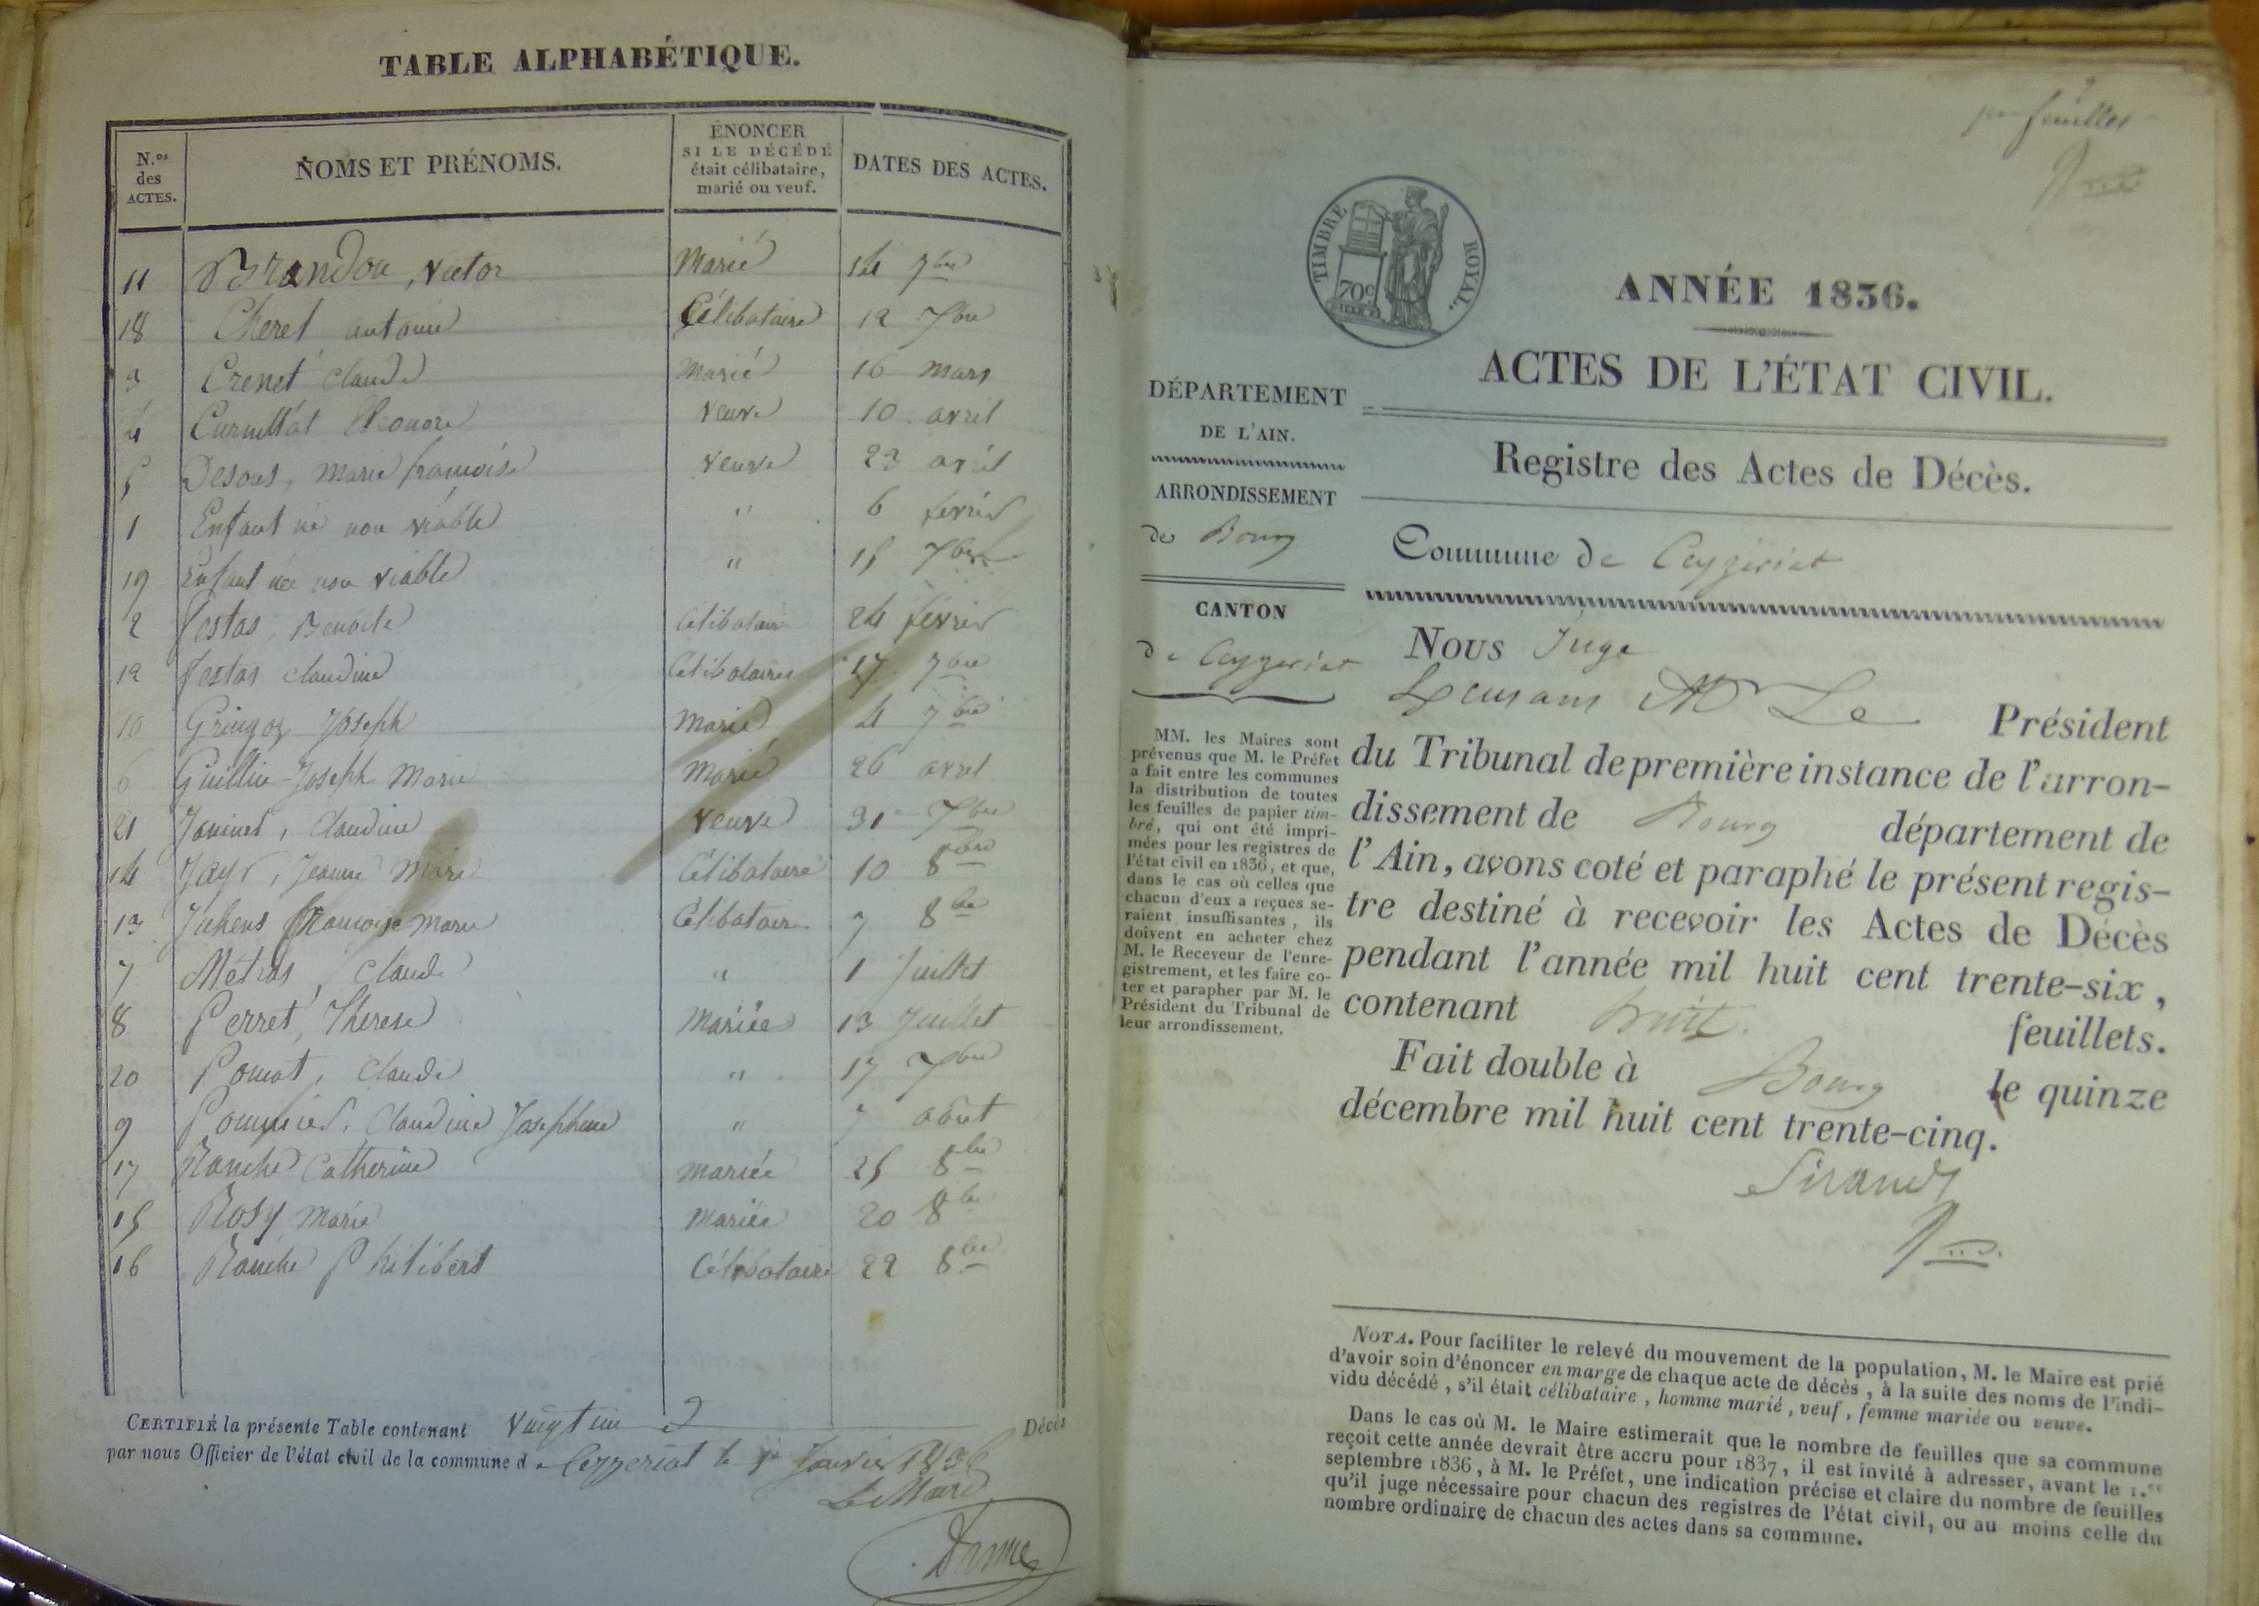 TABLE ALPHABÉTIQUE.
N.os des ACTES.
NOMS ET PRÉNOMS.
ÉNONCER
SI LE DÉCÉDÉ
était célibataire,
marié ou veuf.
DATES DES ACTES.
11 Brandon, Victor Marié 14 7bre
18 Cheret antoine Célibataire 12 Xbre
3 Crenet Claude Marié 16 mars
4 Curnillat Veuve 10 avril
5 Desous, Marie françoise Veuve 23 avril
1 Enfant né non viable " 6 février
19 Enfant née non viable " 15 Xbre
2 Festas, Benoite Célibataire 24 février
12 Festas Claudine Célibataire 17 7bre
10 Gringoz Joseph Marié 4 7bre
6 Guillin Joseph Marie Marié 26 avril
21 Janinet, Claudine Veuve 31 Xbre
14 Jayr, Jeanne Marie Célibataire 10 8bre
13 françoise Marie Célibataire 7 8bre
7 Métras, Claude " 1 Juillet
8 Perret, Thérese Mariée 13 Juillet
20 Pomat, Claude " 17 Xbre
9 Pommier, Claudine Josephine " 7 août
17 Ranche Catherine Mariée 25 8bre
15 Rosy Marie Mariée 20 8bre
16 Ranche Philibert Célibataire 22 8bre
CERTIFIÉ la présente Table contenant Vingt un Décès
par nous Officier de l'état civil de la commune de Ceyzeriat le 1er Janvier 1836
Le Maire
feuilles
TIMBRE ROYAL.
70c
ANNÉE 1836.
ACTES DE L'ÉTAT CIVIL.
DÉPARTEMENT
DE L'AIN.
Registre des Actes de Décès.
ARRONDISSEMENT
de Bourg
Commune de Ceyzeriat
CANTON
de Ceyzeriat
MM. les Maires sont
prévenus que M. le Préfet
a fait entre les communes
la distribution de toutes
les feuilles de papier tim-
bré, qui ont été impri-
mées pour les registres de
l'état civil en 1836, et que,
dans le cas où celles que
chacun d'eux a reçues se-
raient insuffisantes, ils
doivent en acheter chez
M. le Receveur de l'enre-
gistrement, et les faire co-
ter et parapher par M. le
Président du Tribunal de
leur arrondissement.
Nous Juge
M Le Président
du Tribunal de première instance de l'arron-
dissement de Bourg département de
l'Ain, avons coté et paraphé le présent regis-
tre destiné à recevoir les Actes de Décès
pendant l'année mil huit cent trente-six,
contenant huit feuillets.
Fait double à Bourg le quinze
décembre mil huit cent trente-cinq.
Sirand
NOTA. Pour faciliter le relevé du mouvement de la population, M. le Maire est prié
d'avoir soin d'énoncer en marge de chaque acte de décès, à la suite des noms de l'indi-
vidu décédé, s'il était célibataire, homme marié, veuf, femme mariée ou veuve.
Dans le cas où M. le Maire estimerait que le nombre de feuilles que sa commune
reçoit cette année devrait être accru pour 1837, il est invité à adresser, avant le 1.er
septembre 1836, à M. le Préfet, une indication précise et claire du nombre de feuilles
qu'il juge nécessaire pour chacun des registres de l'état civil, ou au moins celle du
nombre ordinaire de chacun des actes dans sa commune.